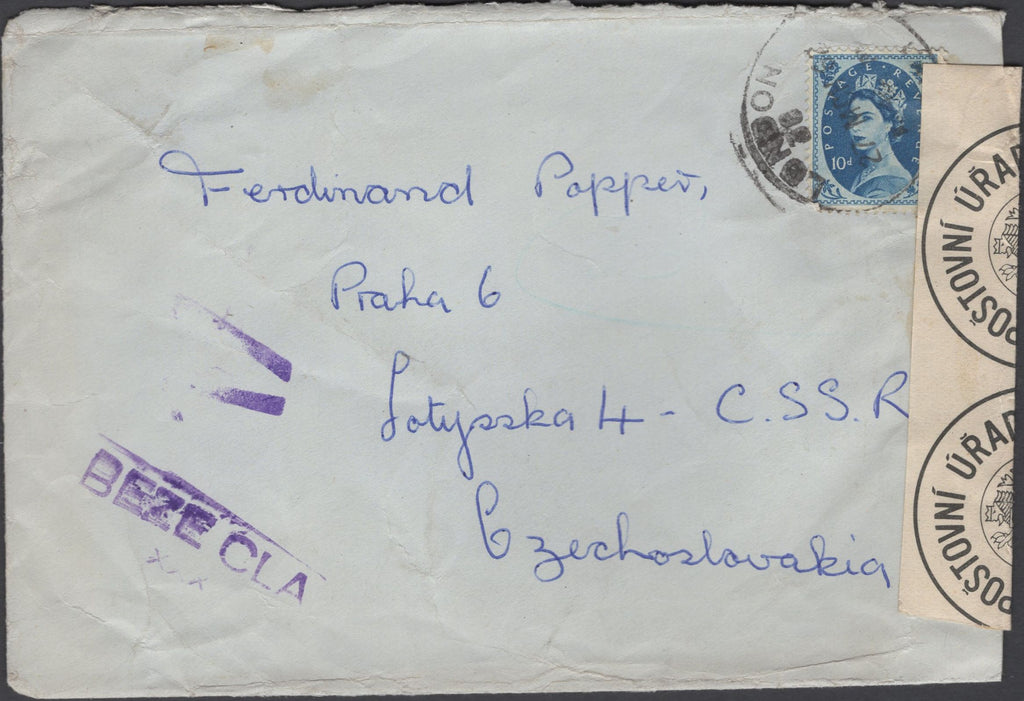 Ferdinand Popper,
Praha 6
Lotysska 4 - C.S.S.R
Czechoslovakia
BEZE CLA
LONDON
POSTAGE REVENUE
10d
POŠTOVNÍ ÚŘAD
POŠTOVNÍ ÚŘAD